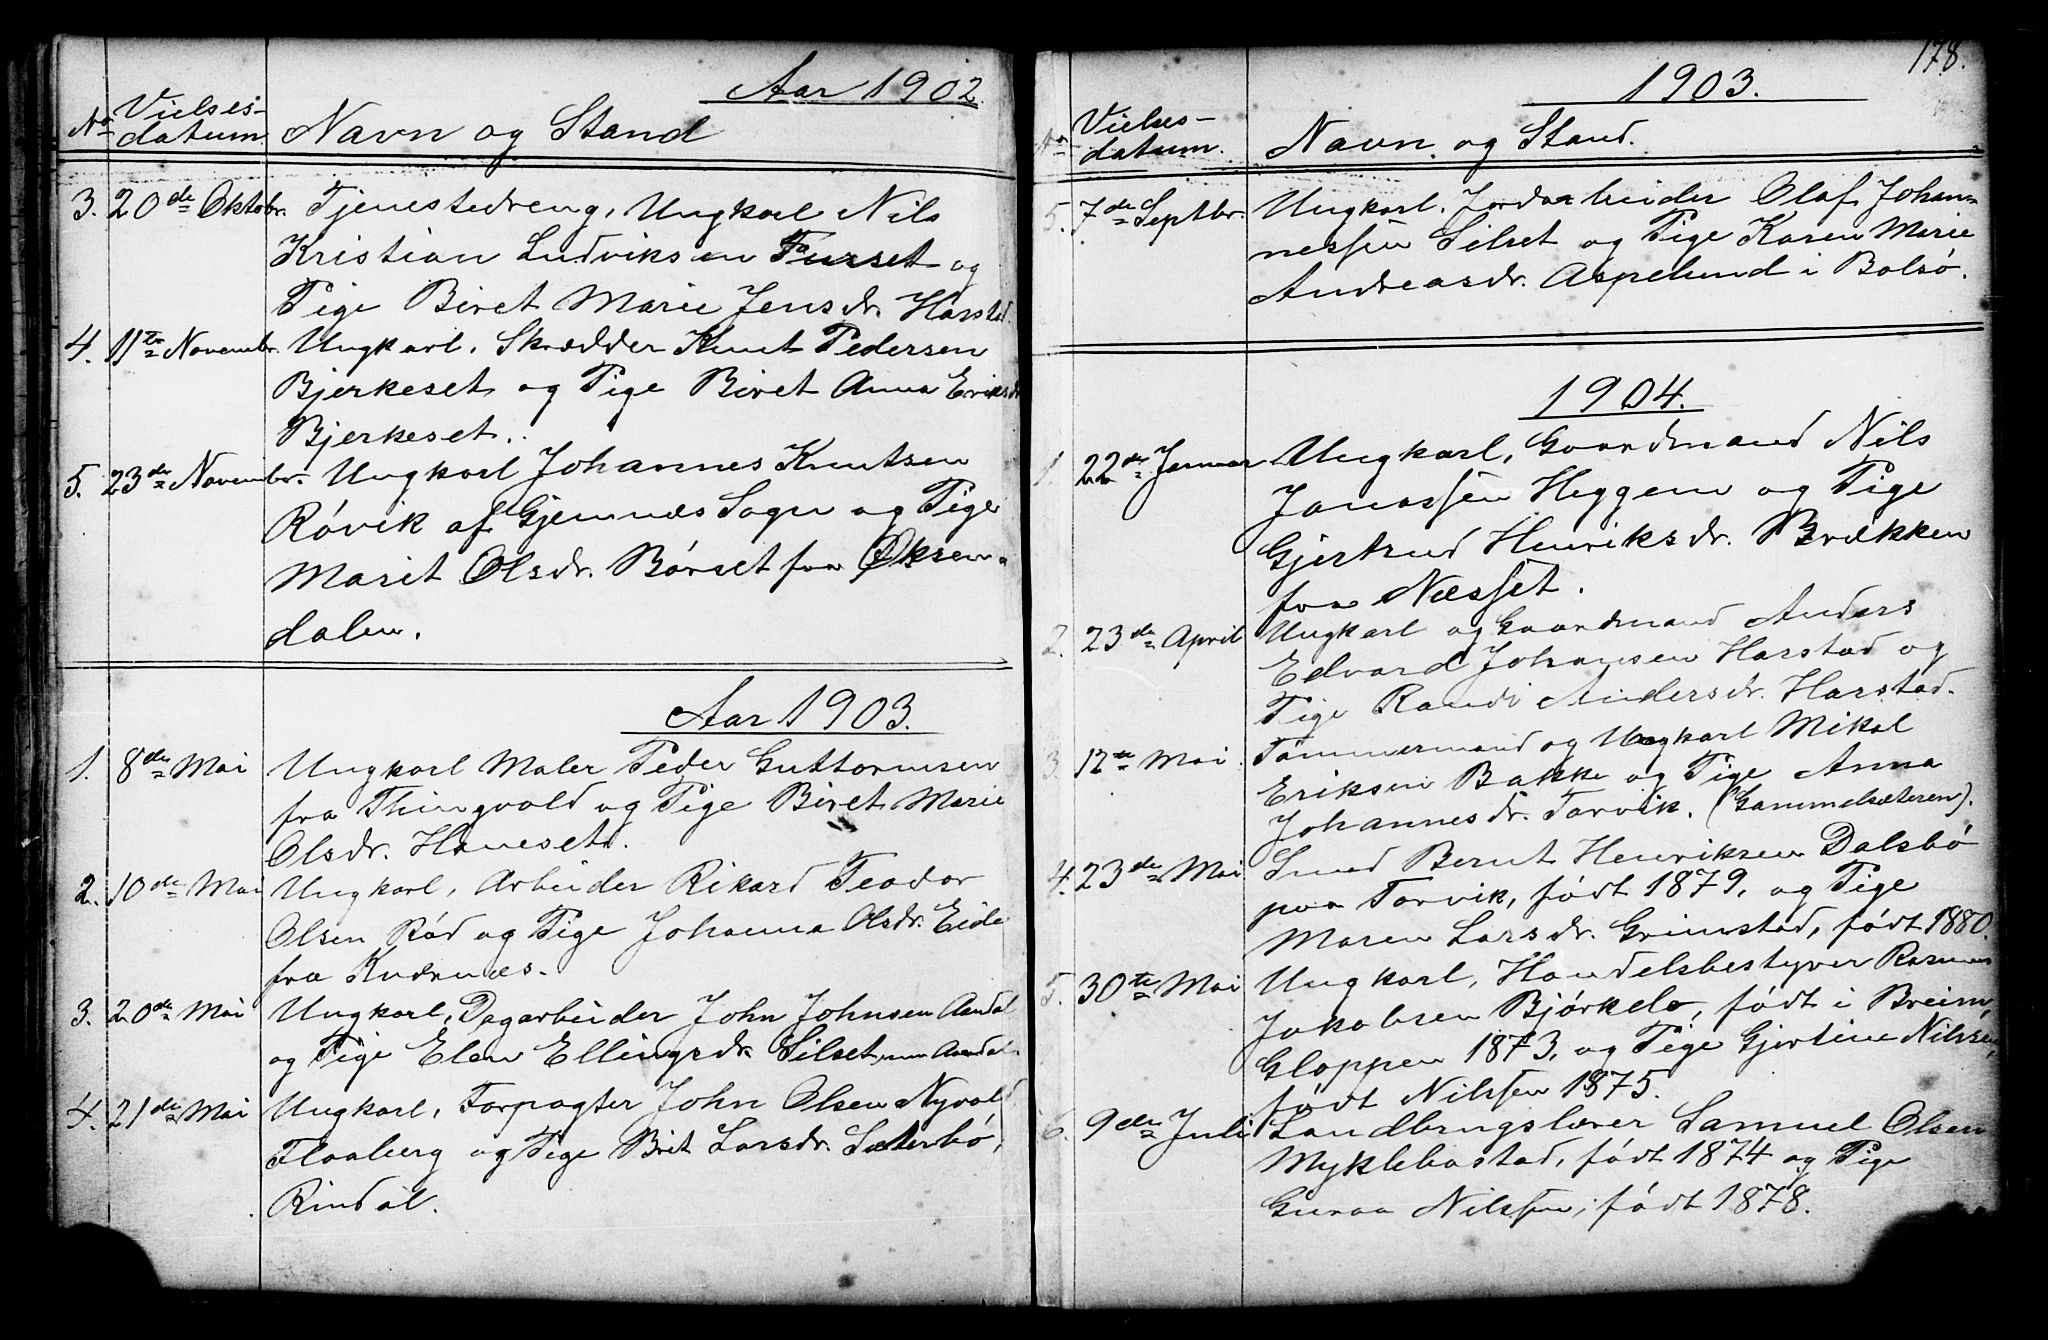 Aar 1902.
No Vielses-
datum. Navn og Stand
3. 20de Oktobr. Tjenestedreng, Ungkarl Nils
Kristian Ludviksen Furset og
Pige Beret Marie Jensdr. Harstad.
4. 11te Novembr. Ungkarl, Skrædder Knut Pedersen
Bjerkeset og Pige Beret Anna Eriksdr
Bjerkeset.
5. 23de Novembr. Ungkarl Johannes Knutsen
Róvik af Gjemnæs Sogn og Pige
Marit Olsdr. Bórset fra Øksen-
dalen.
Aar 1903.
1. 8de Mai Ungkarl Maler Peder Guttormsen
fra Thingvold og Pige Beret Marie
Olsdr. Haneset.
2. 10de Mai Ungkarl, Arbeider Rikard Teodor
Olsen Ród og Pige Johanna Olsdr. Eide
fra Kværnæs.
3. 20de Mai Ungkarl, Dagarbeider John Johnsen Aandal
og Pige Elen Ellingsdr. Silset, nu Aandal.
4. 21de Mai Ungkarl, Forpagter John Olsen Nyvold
Flaaberg og Pige Brit Larsdr. Sæterbó,
Rindal.
178.
1903.
No Vielses-
datum. Navn og Stand.
5. 7de Septbr. Ungkarl, Jordarbeider Olaf Johan-
nessen Silset og Pige Karen Marie
Andreasdr. Aspelund i Bolsó.
1904.
1. 22de Januar Ungkarl, Gaardmand Nils
Janassen Heggem og Pige
Gjertrud Henriksdr. Brækken
fra Næsset.
2. 23de April Ungkarl og Gaardmand Anders
Edvard Johansen Harstad og
Pige Randi Andersdr. Harstad.
3. 12te Mai Tómmermand og Ungkarl Mikal
Eriksen Bakke og Pige Anna
Johannesdr. Torvik. (Gammelsæteren).
4. 23de Mai Smed Bernt Henriksen Dalsbó
paa Torvik, fódt 1879, og Pige
Maren Larsdr. Grimstad, fódt 1880.
5. 30te Mai Ungkarl, Handelsbestyrer Rasmus
Jakobsen Bjórkelo, fódt i Breim,
Gloppen 1873, og Pige Gjertine Nilssen,
fódt Nilssen 1875.
6. 9de Juli Landbrugslærer Samuel Olsen
Myklebostad, fódt 1874 og Pige
Guraa Nilssen, fódt 1878.